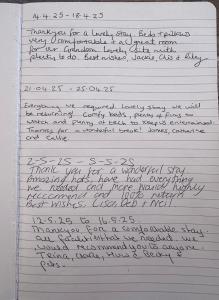 14.4.25 - 18.4.25
Thankyou for a lovely stay. Beds + pillows
very comfortable & a great room
for our Grandson. Lovely with
plenty to do. Best wishes, Jackie, Chris & Riley.
21.04.25 - 25.04.25
Everything we required. Lovely stay we will
be returning! Comfy beds, plenty of films to
watch and plenty of to keep us entertained.
Thanks for a wonderful break! James, Catherine
and Callie.
2-5-25 - 5-5-25
Thank you for a wonderful stay
Amazing hosts, have had everything
we needed and more would highly
reccomend and 100% return
Best wishes Lisa, Deb + Neil
12.5.25 to 16.5.25
Thankyou for a comfortable stay.
all facilities that we needed. we
would recommend you to anyone.
Trina, & Becky &